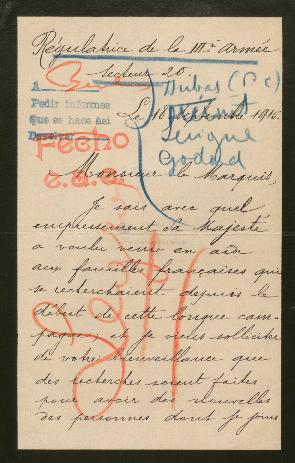 Régulatrice de la IIIe Armée
Secteur 20
A
Pedir informes
Que se hace asi
Fecho
Dubas (P c)
Serigne
Godard
Le 18 septembre 1915.
Monsieur le Marquis,
Je sais avec quel
empressement Sa Majesté
a voulu venir en aide
aux familles françaises qui
se recherchaient depuis le
début de cette longue cam-
pagne, et je viens solliciter
de votre bienveillance que
des recherches soient faites
pour avoir des nouvelles
des personnes dont je joins